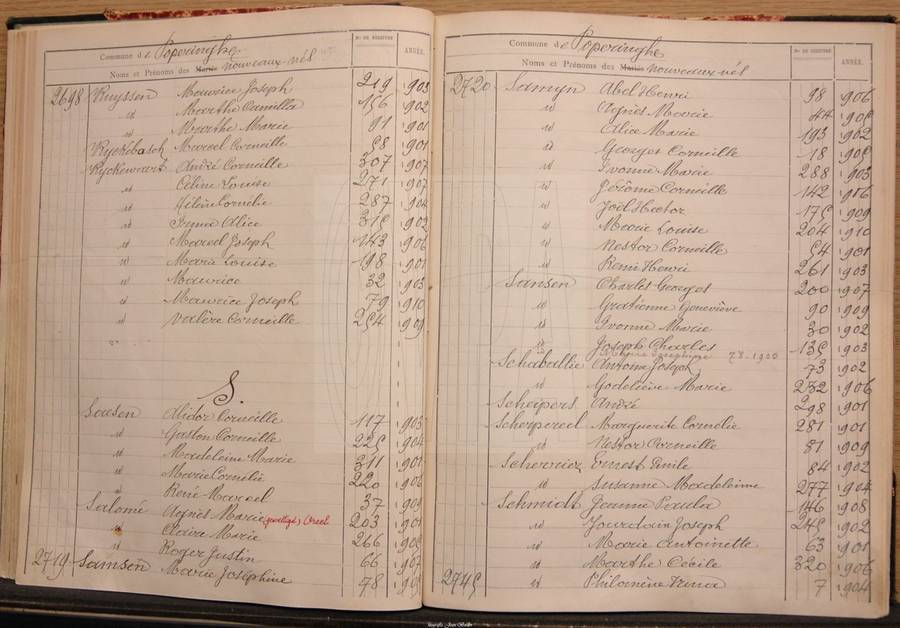 Commune de Poperinghe
Noms et Prénoms des Mariés nouveaux-nés
Nos DE REGISTRE
ANNÉE.
2698 Ruyssen Maurice Joseph 219 1903
id Marthe Camilla 156 1902
id Marthe Marie 91 1901
Ryckebosch Marcel Corneille 58 1901
Ryckewaert André Corneille 307 1907
id Céline Louise 271 1907
id Hélène Cornélie 287 1904
id Irma Alice 315 1902
id Marcel Joseph 143 1906
id Marie Louise 198 1901
id Maurice 32 1903
id Maurice Joseph 79 1910
id Valère Corneille 254 1909
S.
Saesen Alidor Corneille 117 1903
id Gaston Corneille 225 1904
id Madeleine Marie 311 1901
id Marie Cornélie 220 1906
id René Marcel 37 1909
Salomé Agnès Marie 203 1901
id Claire Marie 266 1905
id Roger Justin 66 1907
2719 Samsen Marie Joséphine 78 1905
Commune de Poperinghe
Noms et Prénoms des Mariés nouveaux-nés
Nos DE REGISTRE
ANNÉE.
2720 Samyn Abel Henri 98 1906
id Agnès Marie 44 1905
id Alice Marie 193 1902
id Georges Corneille 18 1905
id Ivonne Marie 288 1903
id Jérôme Corneille 142 1906
id Joël Hector 175 1909
id Marie Louise 204 1910
id Nestor Corneille 54 1901
id Remi Henri 261 1903
Sansen Charles Georges 200 1907
id Gratienne Geneviève 90 1909
id Ivonne Marie 30 1902
id Joseph Charles 135 1903
78-1900
Schabaillie Antoine Joseph 73 1902
id Godelieve Marie 232 1906
Scheipers André 298 1901
Scherpereel Marguerite Cornélie 281 1901
id Nestor Corneille 81 1909
Scherriez Ernest Emile 84 1902
id Susanne Madeleine 277 1904
Schmidt Jeanne Paula 146 1908
id Jourdain Joseph 245 1902
id Marie Antoinette 63 1901
id Marthe Cécile 320 1906
2745 id Philomène Irma 7 1904